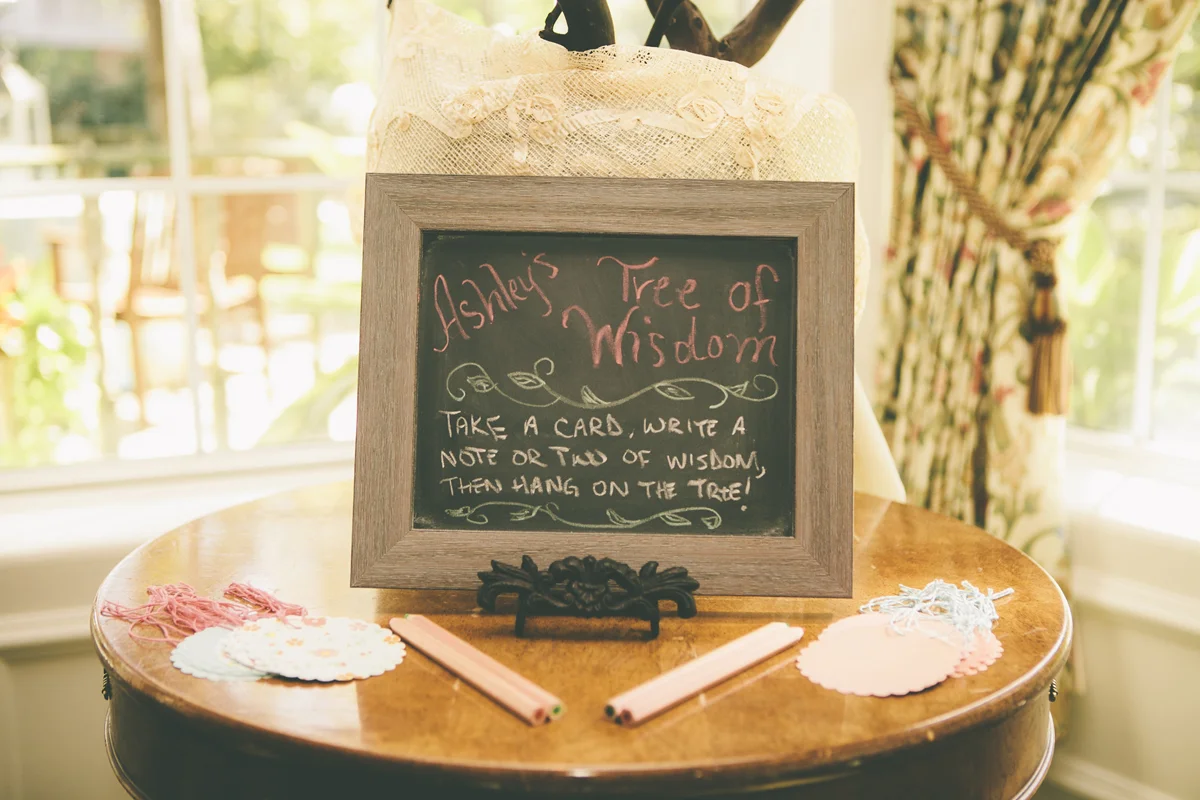 Ashley's Tree of
Wisdom
TAKE A CARD, WRITE A
NOTE OR TWO OF WISDOM,
THEN HANG ON THE TREE!